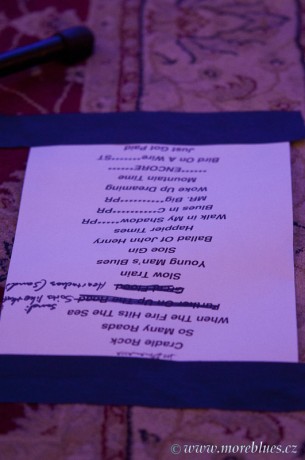 Cradle Rock
So Many Roads
When The Fire Hits The Sea
Further On Up The Road
Slow Train
Young Man's Blues
Sloe Gin
Ballad Of John Henry
Happier Times
Walk in My Shadow********PR
Blues in C********PR
MR. Big********PR
Woke Up Dreaming
Mountain Time
********ENCORE********
Bird On A Wire********ST
Just Got Paid
© www.moreblues.cz